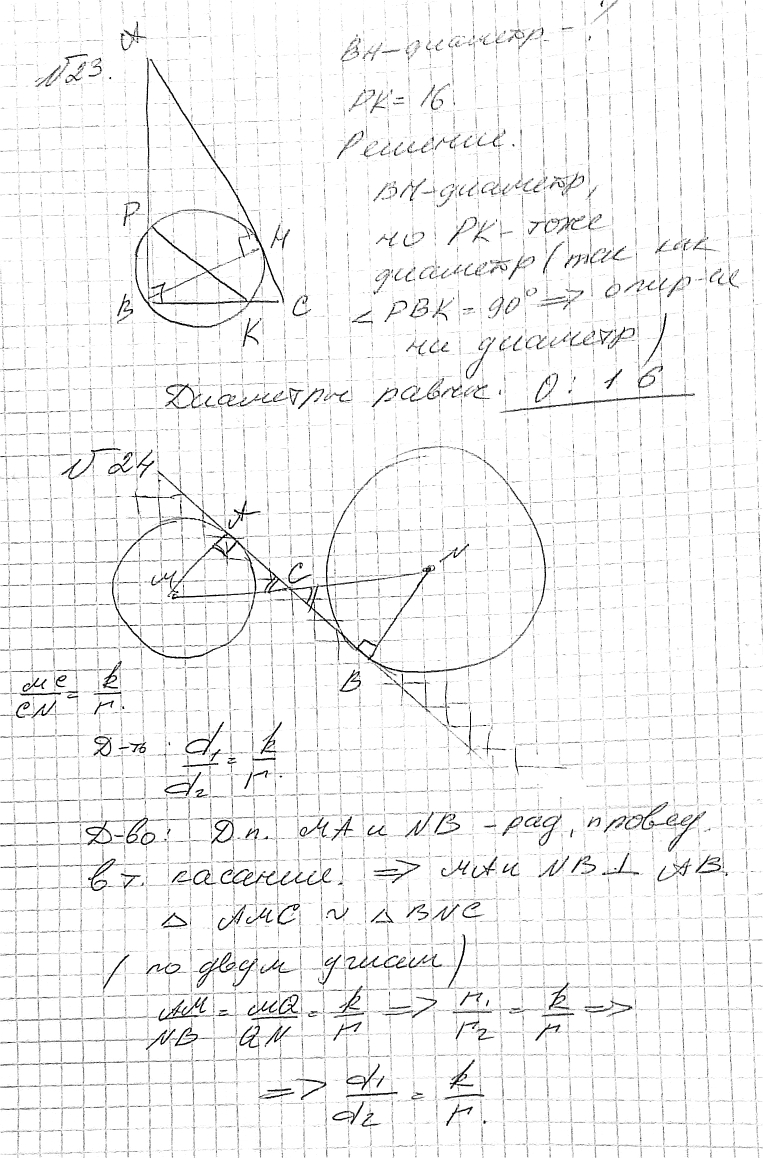 №23.
A
P
B
H
K
C
BH-диаметр - ?
PK= 16.
Решение.
BH-диаметр,
но PK- тоже
диаметр (так как
∠ PBK = 90° => опир-ся
на диаметр)
Диаметры равны. О: 16
№ 24
A
M
C
N
B
MC/CN = k/n.
Д-ть: d₁/d₂ = k/n.
Д-во: Дп. MA и NB - рад, провед.
в т. касания. => MA и NB ⊥ AB.
△ AMC ~ △ BNC
( по двум углам)
AM/NB = MQ/QN = k/n => r₁/r₂ = k/n =>
=> d₁/d₂ = k/n.